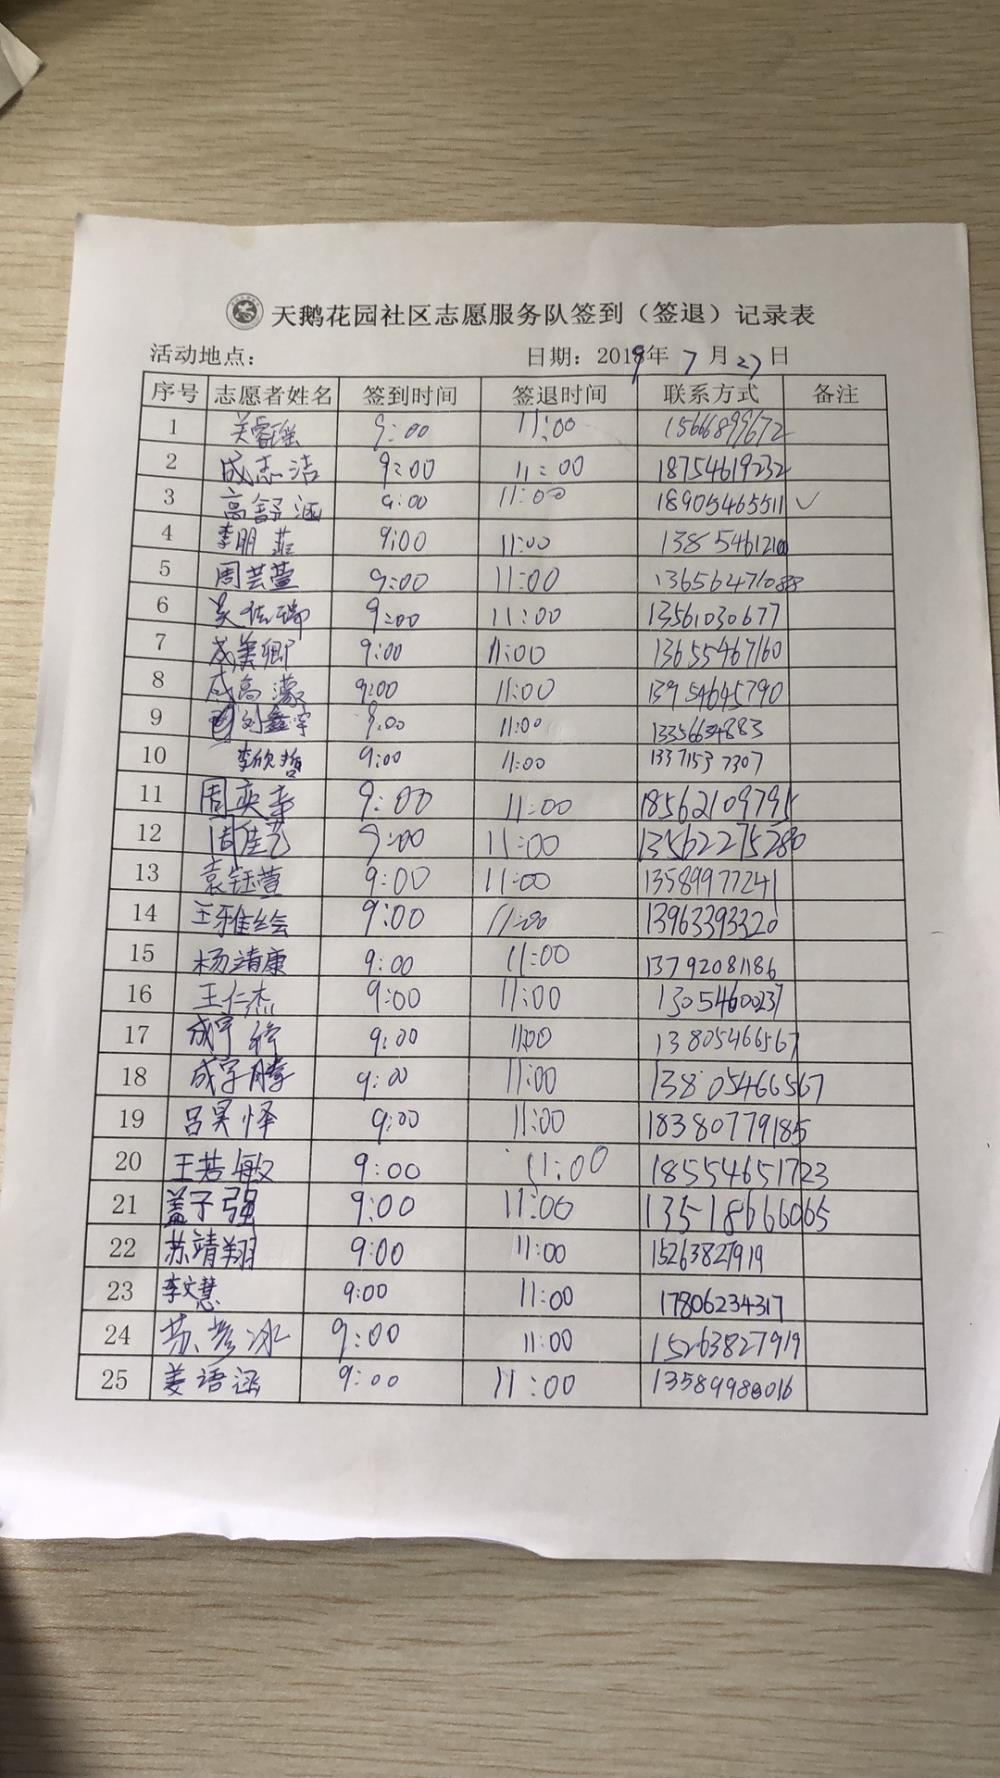 天鹅花园社区志愿服务队签到（签退）记录表
活动地点： 日期：2019年7月27日
序号 志愿者姓名 签到时间 签退时间 联系方式 备注
1 9:00 11:00 15666899672
2 成志洁 9:00 11:00 18754619232
3 高舒涵 9:00 11:00 18905465511 ✓
4 李朋 9:00 11:00
5 周芸萱 9:00 11:00 13656471088
6 9:00 11:00 13561030677
7 成美卿 9:00 11:00 13655467160
8 成高濛 9:00 11:00 13954645790
9 刘鑫宇 9:00 11:00 13356634883
10 李欣哲 9:00 11:00 13371537307
11 周奕辛 9:00 11:00 18562109795
12 周佳艺 9:00 11:00 13562275280
13 袁钰萱 9:00 11:00 13589977241
14 王雅绘 9:00 11:00 13963393320
15 杨靖康 9:00 11:00 13792081186
16 王仁杰 9:00 11:00 13054600237
17 成宇 9:00 11:00 13805466567
18 成宇腾 9:00 11:00 13805466567
19 吕昊怿 9:00 11:00 18380779185
20 王若敏 9:00 11:00 18554651723
21 盖子强 9:00 11:00 13518666065
22 苏靖翔 9:00 11:00 15263827919
23 李文慧 9:00 11:00 17806234317
24 苏彦冰 9:00 11:00 15263827919
25 姜语涵 9:00 11:00 13589988016